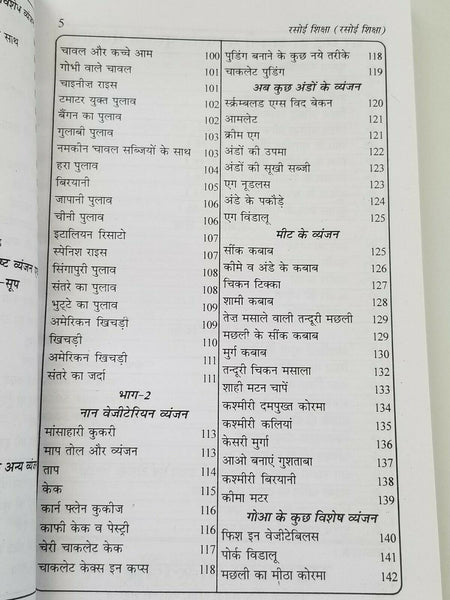 5
रसोई शिक्षा ( रसोई शिक्षा)
चावल और कच्चे आम 100
गोभी वाले चावल 101
चाइनीज़ राइस 101
टमाटर युक्त पुलाव 102
बैंगन का पुलाव 102
गुलाबी पुलाव 103
नमकीन चावल सब्जियों के साथ 103
हरा पुलाव 104
बिरयानी 105
जापानी पुलाव 106
चीनी पुलाव 106
इटालियन रिसाटो 107
स्पेनिश राइस 107
सिंगापुरी पुलाव 108
संतरे का पुलाव 108
भुट्टे का पुलाव 109
अमेरिकन खिचड़ी 109
खिचड़ी 110
अमेरिकन खिचड़ी 111
संतरे का जर्दा 111
भाग-2
नान वेजीटेरियन व्यंजन
मांसाहारी कुकरी 113
माप तोल और व्यंजन 113
ताप 114
केक 115
कार्न फ्लेन कुकीज 116
काफी केक व पेस्ट्री 116
चेरी चाकलेट केक 117
चाकलेट केक्स इन कप्स 118
पुडिंग बनाने के कुछ नये तरीके 118
चाकलेट पुडिंग 119
अब कुछ अंडों के व्यंजन
स्क्रम्बलड एग्स विद बेकन 120
आमलेट 121
क्रीम एग 121
अंडों की उपमा 122
अंडों की सूखी सब्जी 123
एग नूडलस 123
अंडे के पकौड़े 124
एग विंडालू 125
मीट के व्यंजन
सींक कबाब 125
कीमे व अंडे के कबाब 126
चिकन टिक्का 127
शामी कबाब 128
तेज मसाले वाली तन्दूरी मछली 129
मछली के सींक कबाब 129
मुर्ग कबाब 130
तन्दूरी चिकन मसाला 132
शाही मटन चापें 133
कश्मीरी दमपुख्त कोरमा 134
कश्मीरी कलियां 135
केसरी मुर्गा 136
आओ बनाएं गुशताबा 137
कश्मीरी बिरयानी 138
कीमा मटर 139
गोआ के कुछ विशेष व्यंजन
फिश इन वेजीटेबिलस 140
पोर्क विडालू 141
मछली का मीठा कोरमा 142